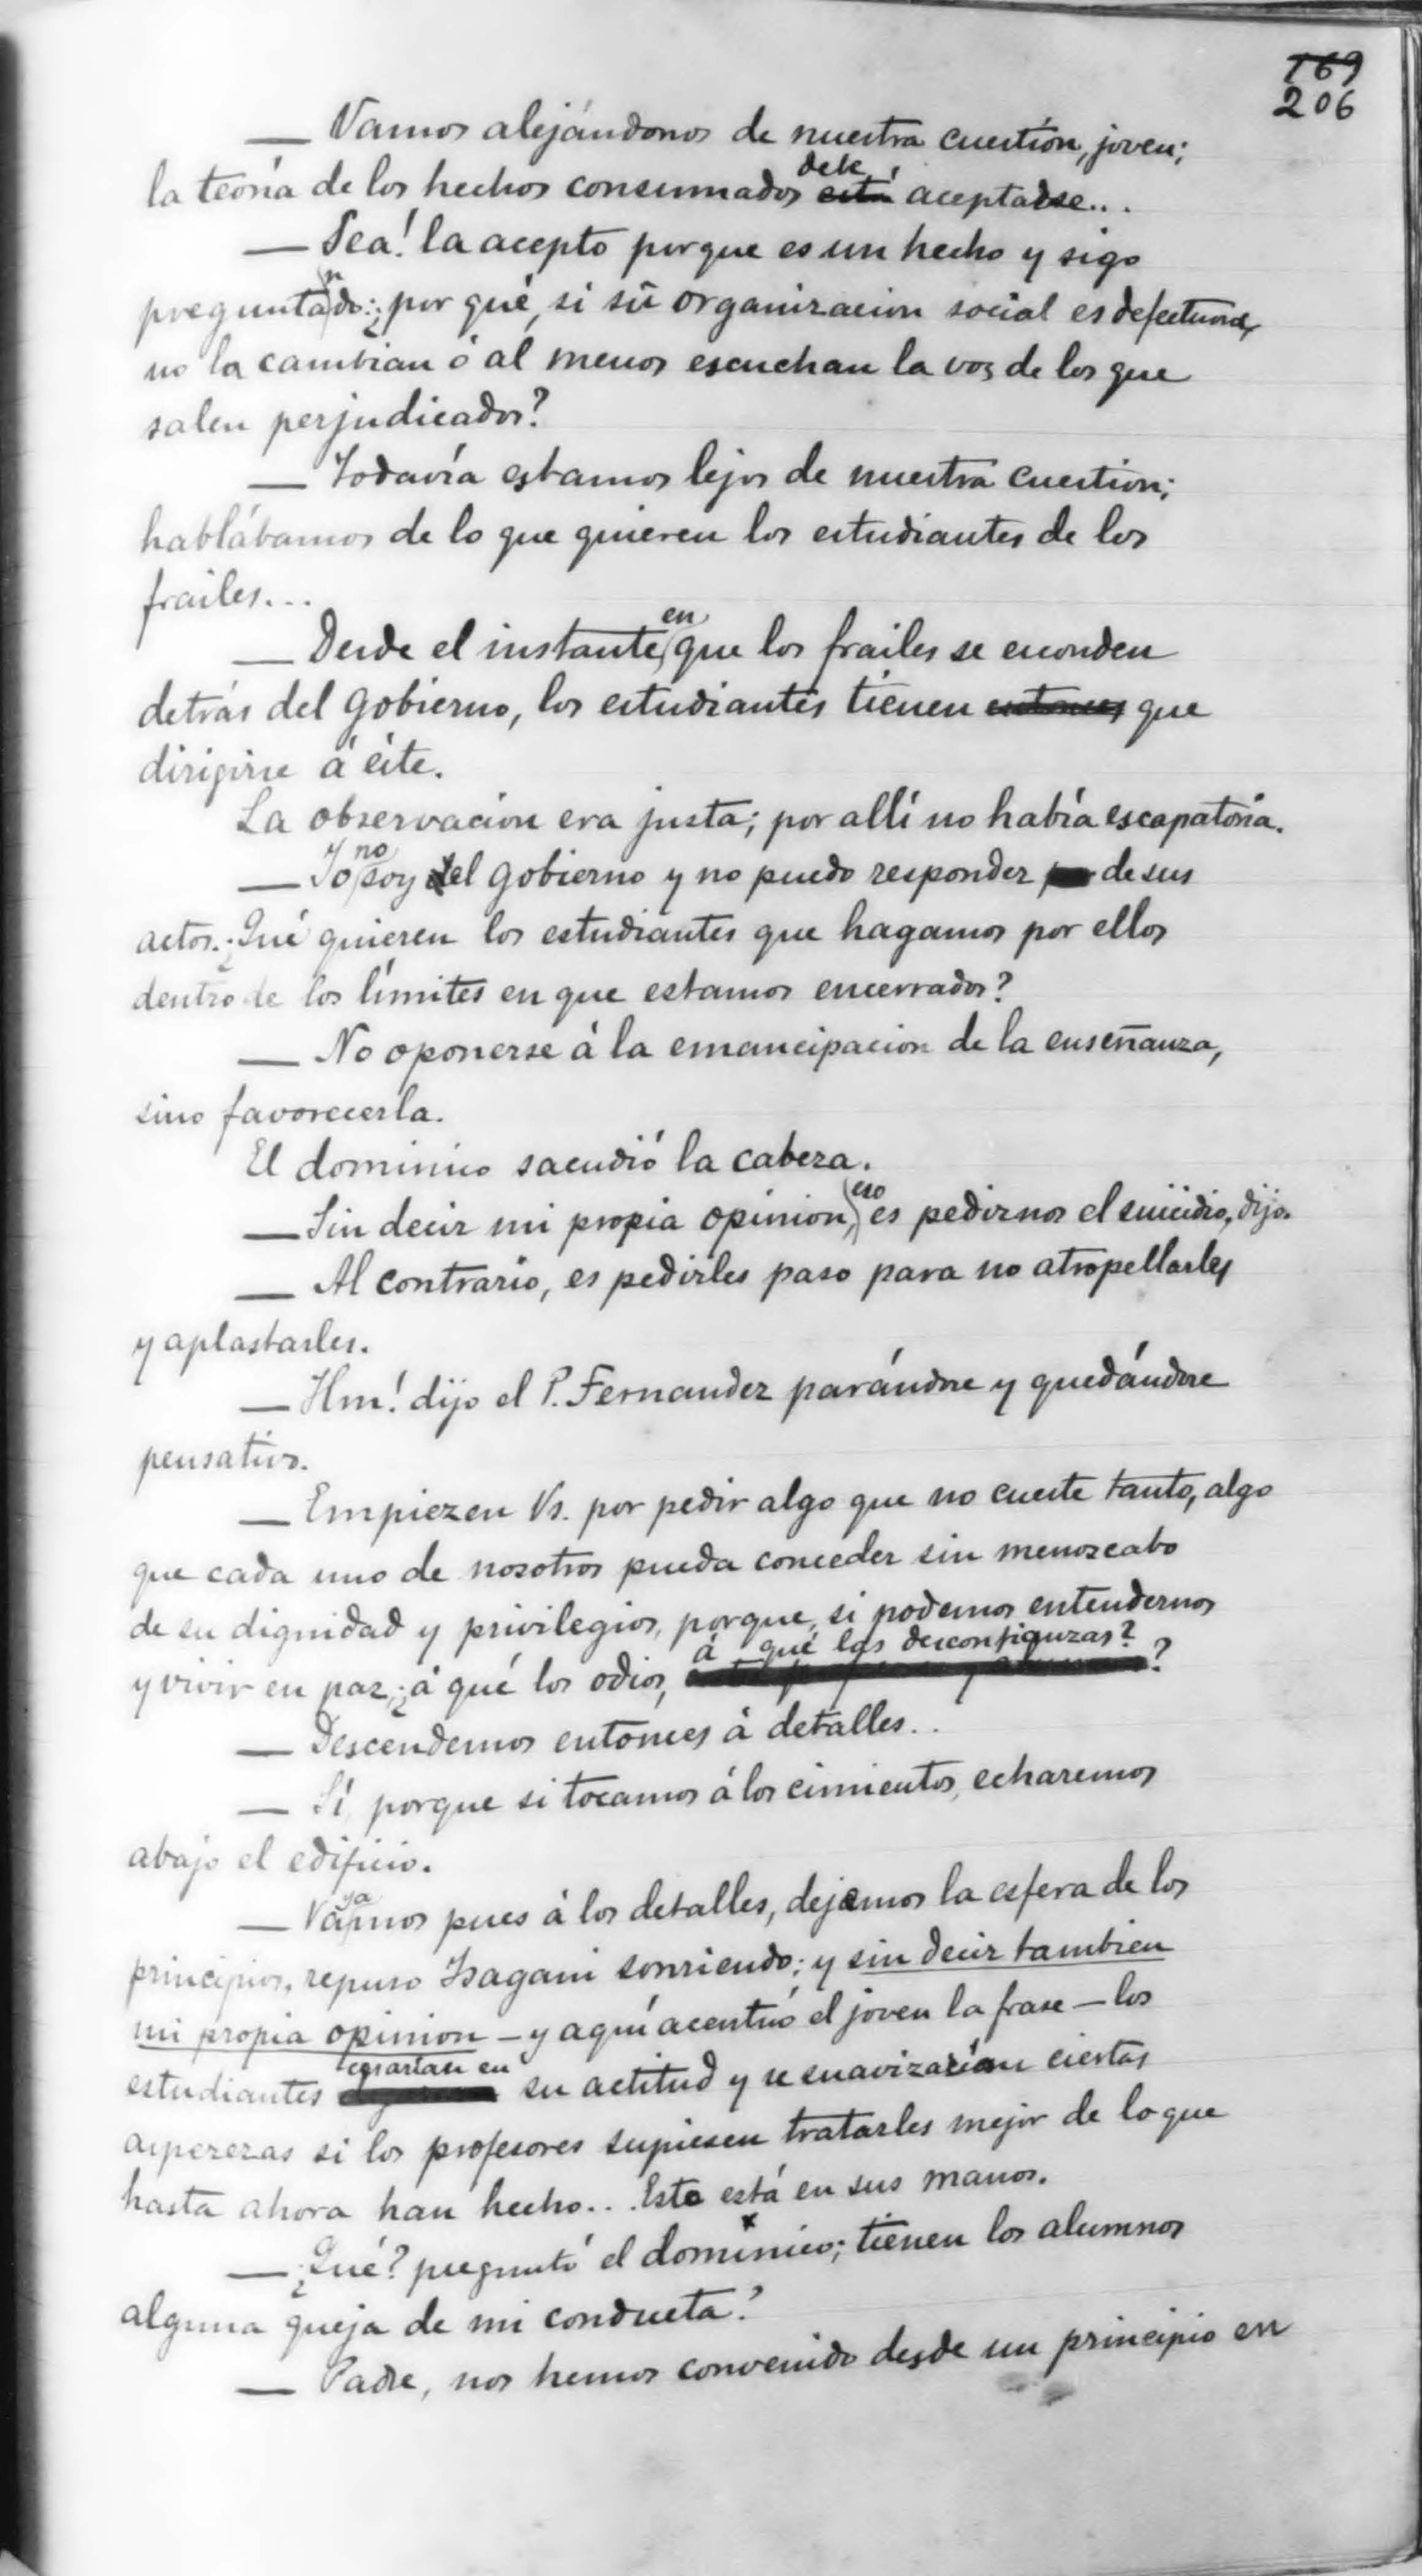 169
206
— Vamos alejándonos de nuestra cuestión, joven;
la teoría de los hechos consumados debe está aceptarse...
— Sea! la acepto porque es un hecho y sigo
preguntando: ¿por qué, si su organizacion social es defectuosa,
no la cambian ó al menos escuchan la voz de los que
salen perjudicados?
— Todavía estamos lejos de nuestra cuestion;
hablábamos de lo que quieren los estudiantes de los
frailes...
— Desde el instante en que los frailes se esconden
detrás del gobierno, los estudiantes tienen entonces que
dirigirse á éste.
La observacion era justa; por allí no había escapatoria.
— Yo no soy el gobierno y no puedo responder de sus
actos. ¿Qué quieren los estudiantes que hagamos por ellos
dentro de los límites en que estamos encerrados?
— No oponerse á la emancipacion de la enseñanza,
sino favorecerla.
El dominico sacudió la cabeza.
— Sin decir mi propia opinion, eso es pedirnos el suicidio, dijo.
— Al contrario, es pedirles paso para no atropellarles
y aplastarles.
— Hm! dijo el P. Fernandez parándose y quedándose
pensativo.
— Empiezen Vs. por pedir algo que no cueste tanto, algo
que cada uno de nosotros pueda conceder sin menoscabo
de su dignidad y privilegios, porque, si podemos entendernos
y vivir en paz, ¿á qué los odios, á qué las desconfianzas?
— Descendemos entonces á detalles..
— Sí, porque si tocamos á los cimientos, echaremos
abajo el edificio.
— Vayamos pues á los detalles, dejemos la esfera de los
principios, repuso Isagani sonriendo; y sin decir tambien
mi propia opinion – y aquí acentuó el joven la frase – los
estudiantes cejarían en su actitud y se suavizarían ciertas
asperezas si los profesores supiesen tratarles mejor de lo que
hasta ahora han hecho... Esto está en sus manos.
— ¿Qué? preguntó el dominico; tienen los alumnos
alguna queja de mi conducta?
— Padre, nos hemos convenido desde un principio en